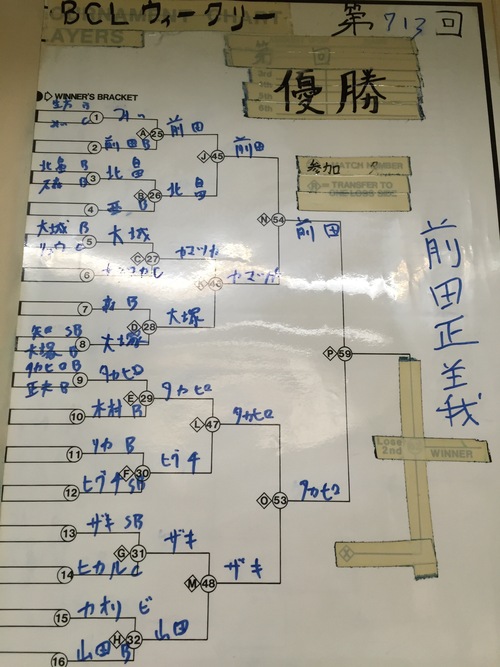 BCL ウィークリー
第713回
AYERS
第 回
優勝
WINNER'S BRACKET
参加
MATCH NUMBER
= TRANSFER TO
前田正主我
1
A 25 前田
2 前田 B
J 45 前田
北畠 B
3 北畠
B 26 北畠
4
N 54 前田
大城 B
5 大城
リュウ C
C 27 ヤマツカ
6
K 46 ヤマツカ
7 B
D 28 大塚
矢口 SB
8 大塚
大塚 B
P 59
タカヒロ B
9 タカヒロ
正夫 B
E 29 タカヒロ
10 木村 B
L 47 タカヒロ
11 リカ B
F 30 ヒグチ
12 ヒグチ SB
O 53 タカヒロ
13 ザキ SB
G 31 ザキ
14 ヒカル C
M 48 ザキ
15 カオリ ビ
H 32 山田
16 山田 B
Lose
2nd
WINNER
X